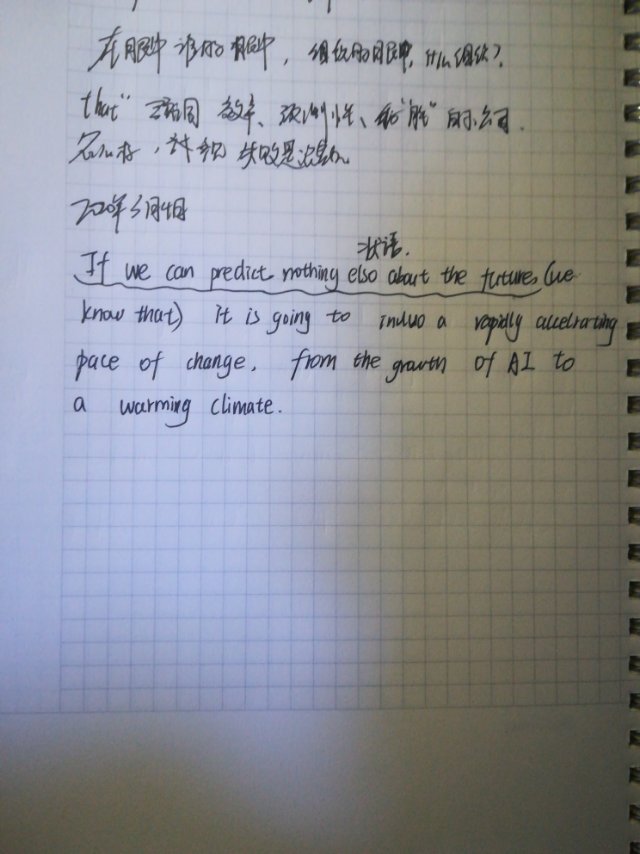 在眼中 谁的眼中, 组织的眼中, 什么组织?
that" 认同 效率、预测性、和"胜" 的公司.
失败是
2020年3月4日
状语.
If we can predict nothing elso about the future, (we
know that) it is going to induo a rapidly accelrating
pace of change, from the growth of AI to
a warming climate.